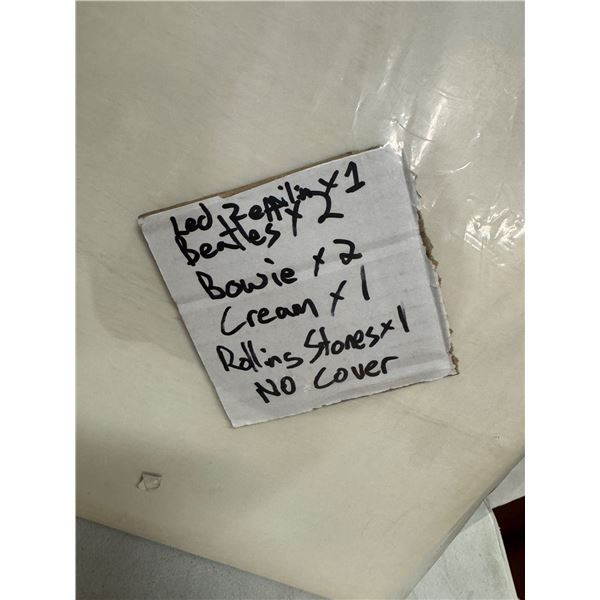 Led Zeppilin x 1
Beatles x 2
Bowie x 2
Cream x 1
Rolling Stones x 1
NO Cover